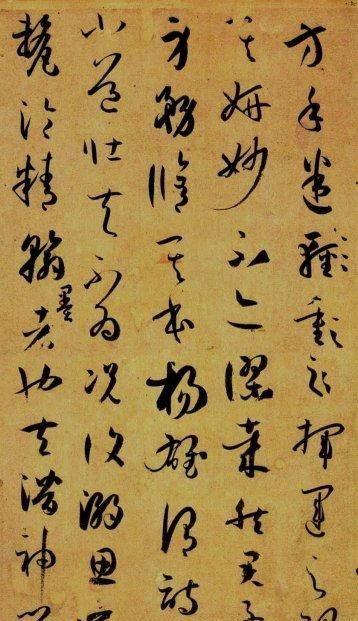 方手迷揮運之理
其妍妙不亦謬哉然君子
身務脩其本楊雄謂詩
小道壯夫不為況復溺思
氂淪精翰墨者也夫潛神